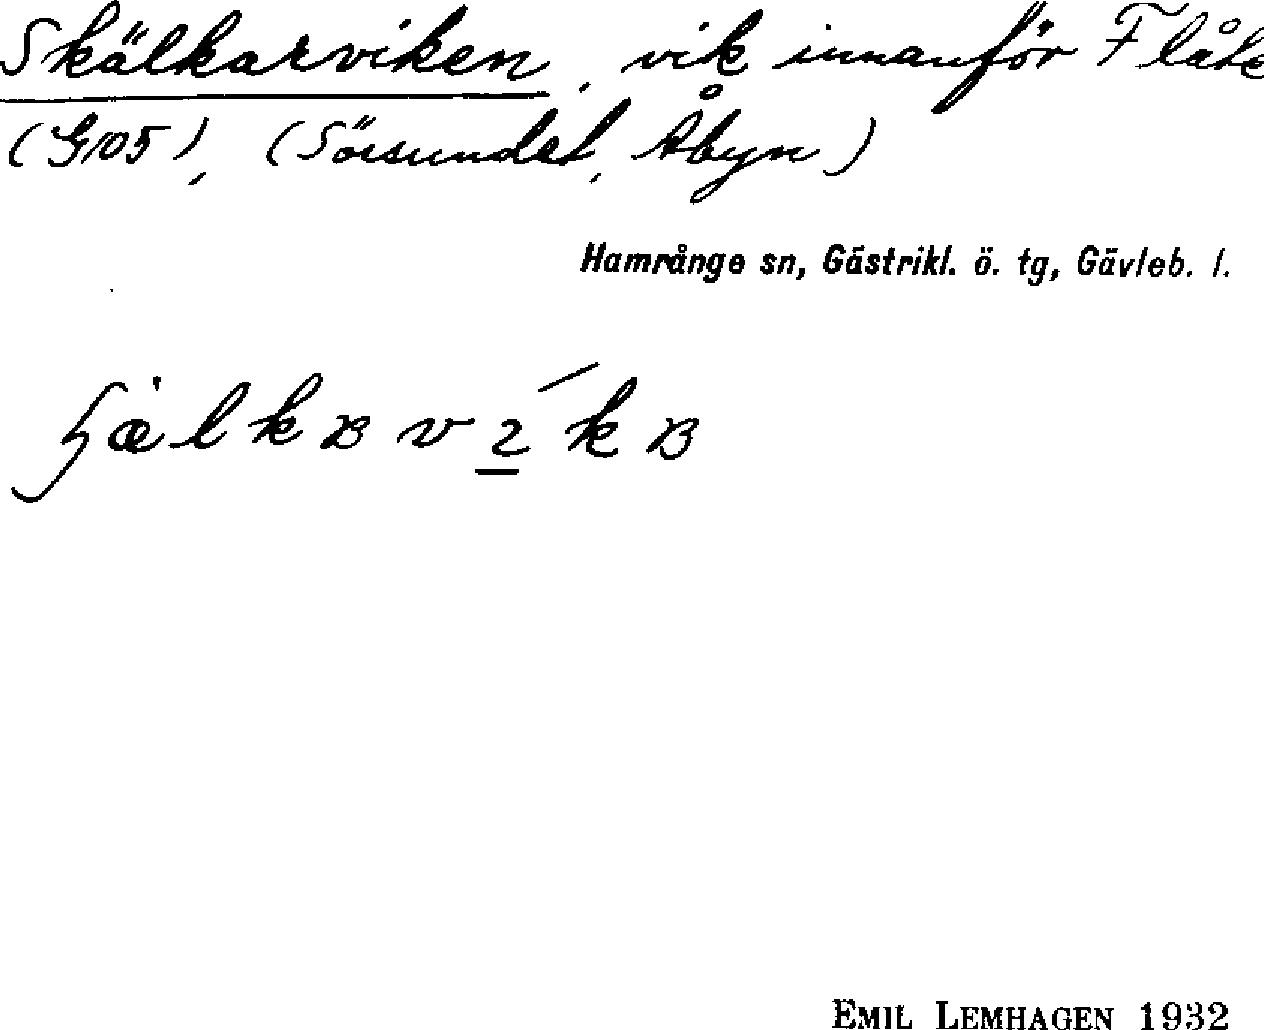 Skälkarviken, vik innanför Flåte
(G105), (Sörsundet, Åbyn)
Hamrånge sn, Gästrikl. ö. tg, Gävleb. l.
EMIL LEMHAGEN 1932